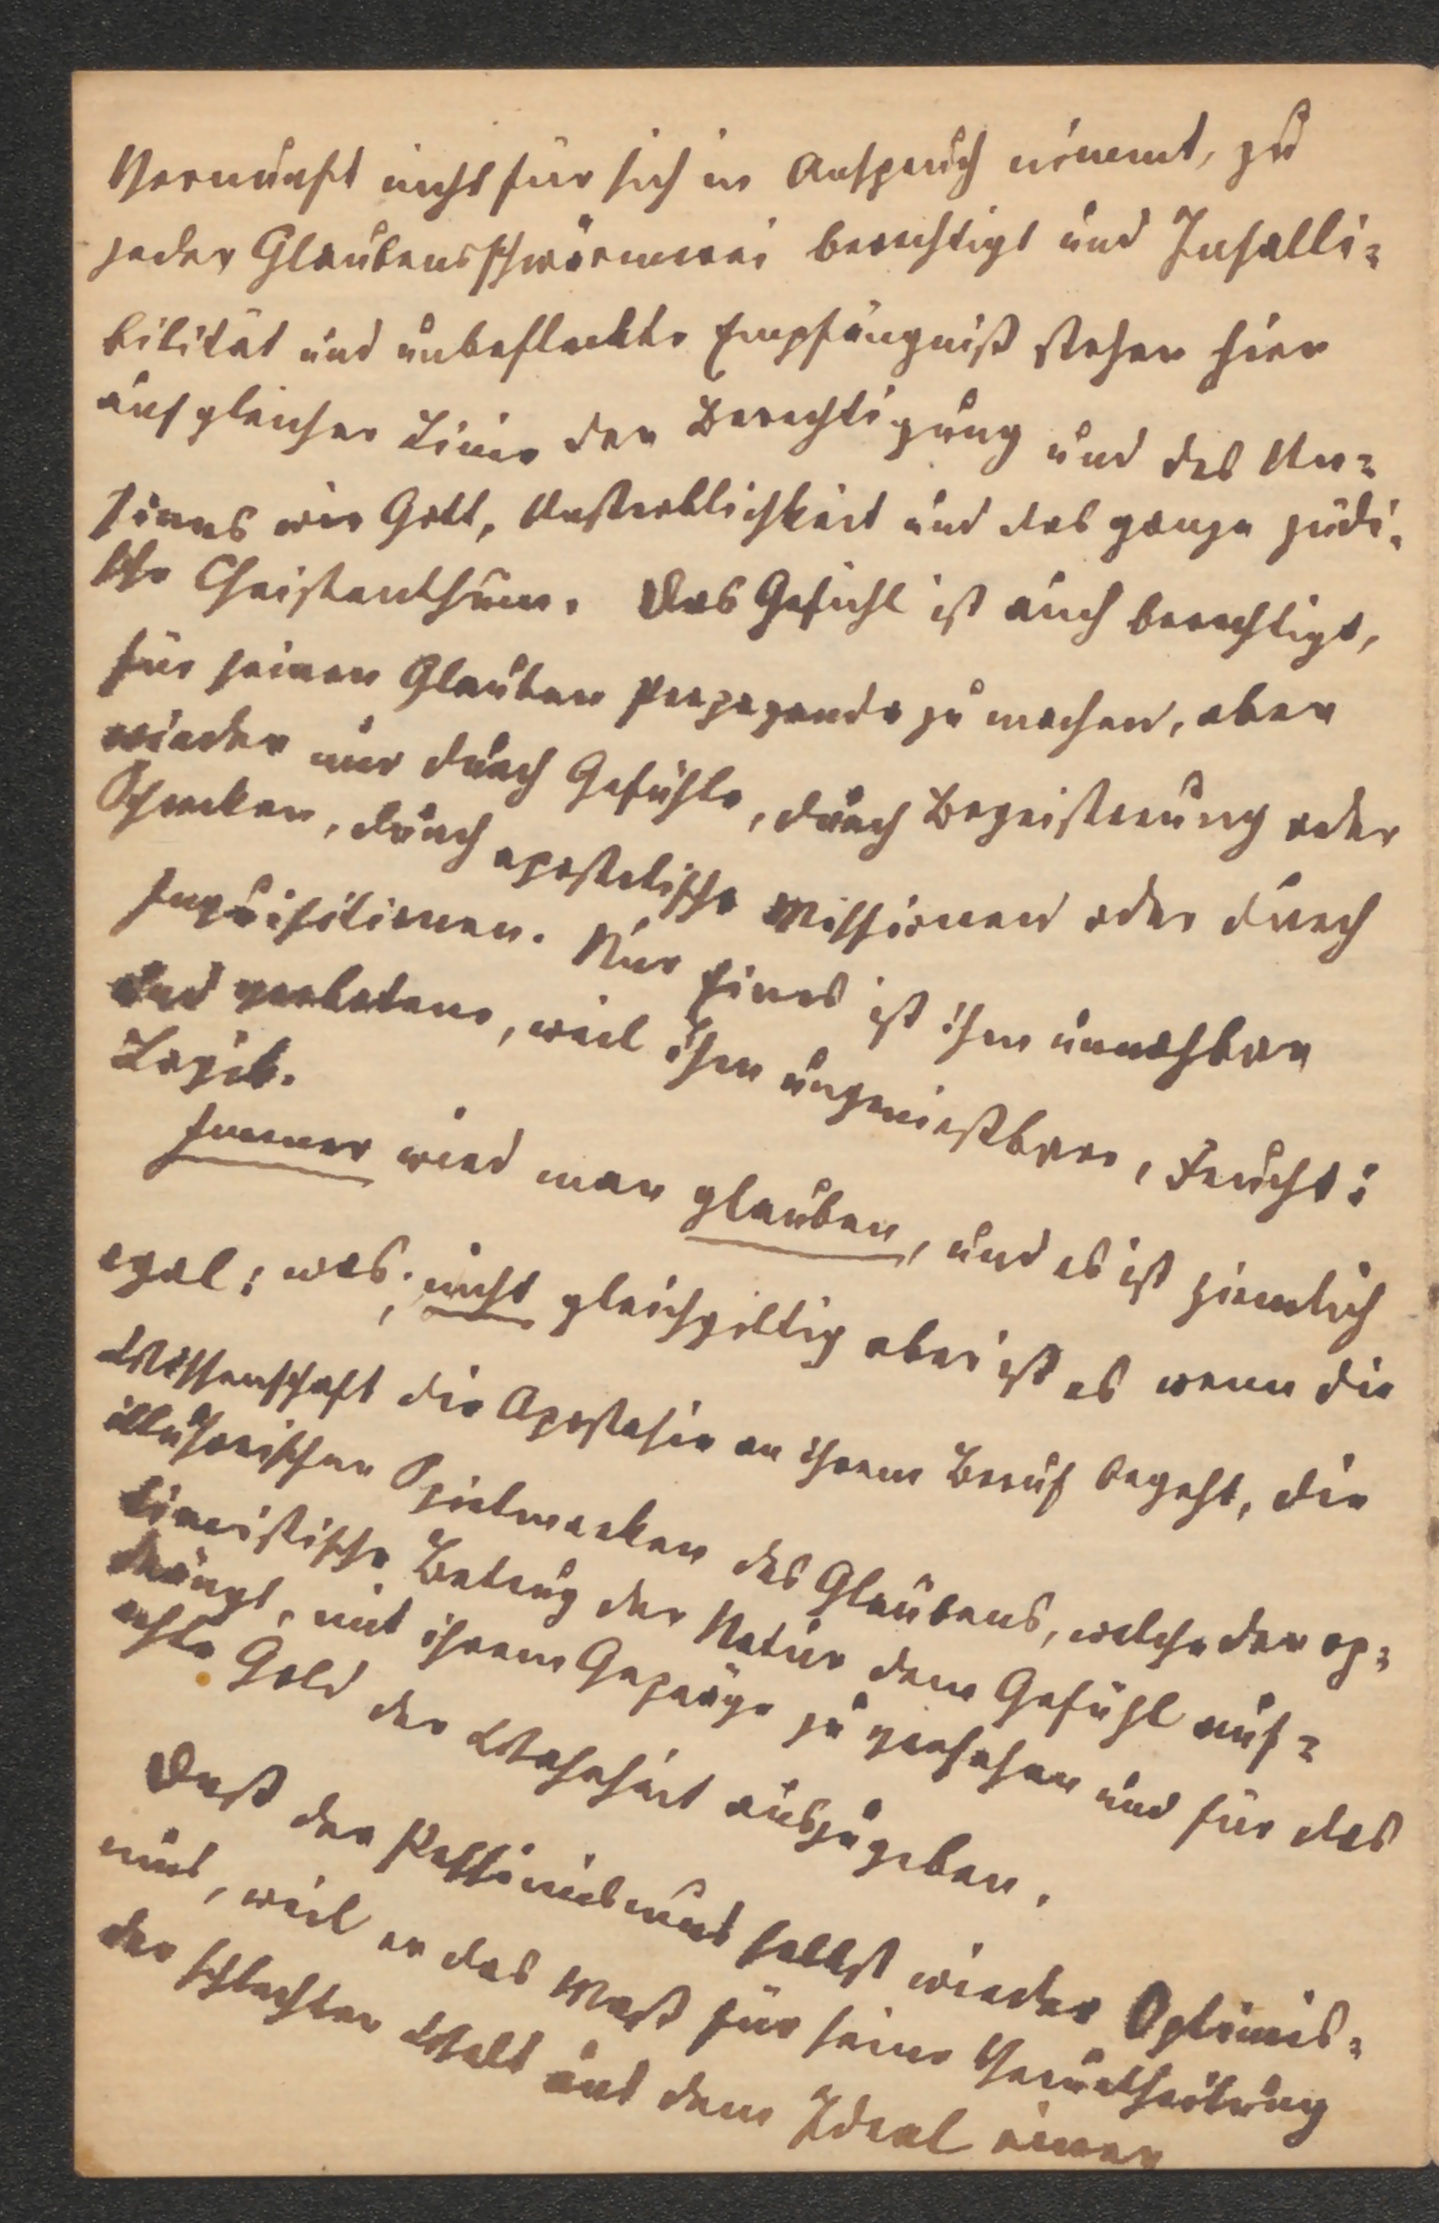 Vernunft nicht für sich in Anspruch nimmt, zu
jeder Glaubensschwärmerei berechtigt und Infalli=
bilität und unbefleckte Empfängniß stehen hier
auf gleicher Linie der Berechtigung und des Un=
sinns wie Gott, Unsterblichkeit und das ganze jüdi=
sche Christenthum. Das Gefühl ist auch berechtigt,
für seinen Glauben Propaganda zu machen, aber
wieder nur durch Gefühle, durch Begeisterung oder
Schrecken, durch apostolische Missionen oder durch
Inquisitionen. Nur Eines ist ihm unnahbar
und verboten, weil ihm ungenießbare, Frucht:
Logik.
Immer wird man glauben, und es ist ziemlich
egal: was; nicht gleichgiltig aber ist es wenn die
Wissenschaft die Apostasie an ihrem Beruf begeht, die
illusorischen Spielmarken des Glaubens, welche der op=
timistische Betrug der Natur dem Gefühl auf=
drängt, mit ihrem Gepräge zu versehen und für das
echte Gold der Wahrheit auszugeben.
Daß der Pessimismus selbst wieder Optimis=
mus, weil er das Maß für seine Verurtheilung
der schlechten Welt aus dem Ideal einer